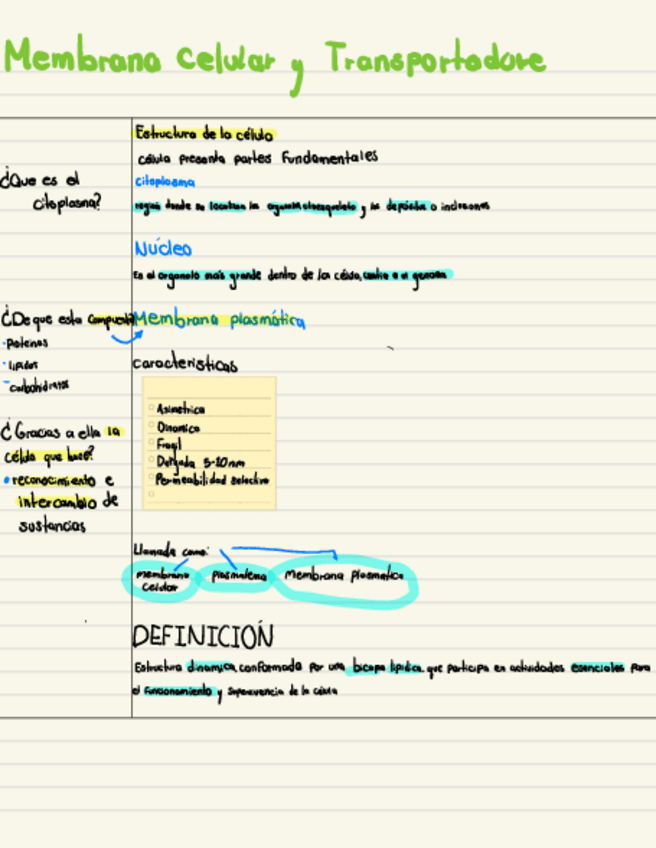 Membrana Celular y Transportadore
Estructura de la célula
célula presenta partes Fundamentales
¿Que es el
citoplasma?
citoplasma
donde se localizan los y los depósitos o inclusiones
Núcleo
Es el organelo más grande dentro de la célula, el genoma
¿De que esta compuesta
Membrana plasmática
Proteinas
lipidos
carbohidratos
caracteristicas
Asimetrica
Dinamica
Fragil
Delgada 5-10 nm
Permeabilidad selectiva
¿Gracias a ella la
célula que hace?
reconocimiento e
intercambio de
sustancias
Llamada como:
membrana
celular
plasmalema
Membrana Plasmatica
DEFINICIÓN
Estructura dinamica, conformada por una bicapa lipidica, que participa en actividades esenciales para
el funcionamiento y supervivencia de la célula